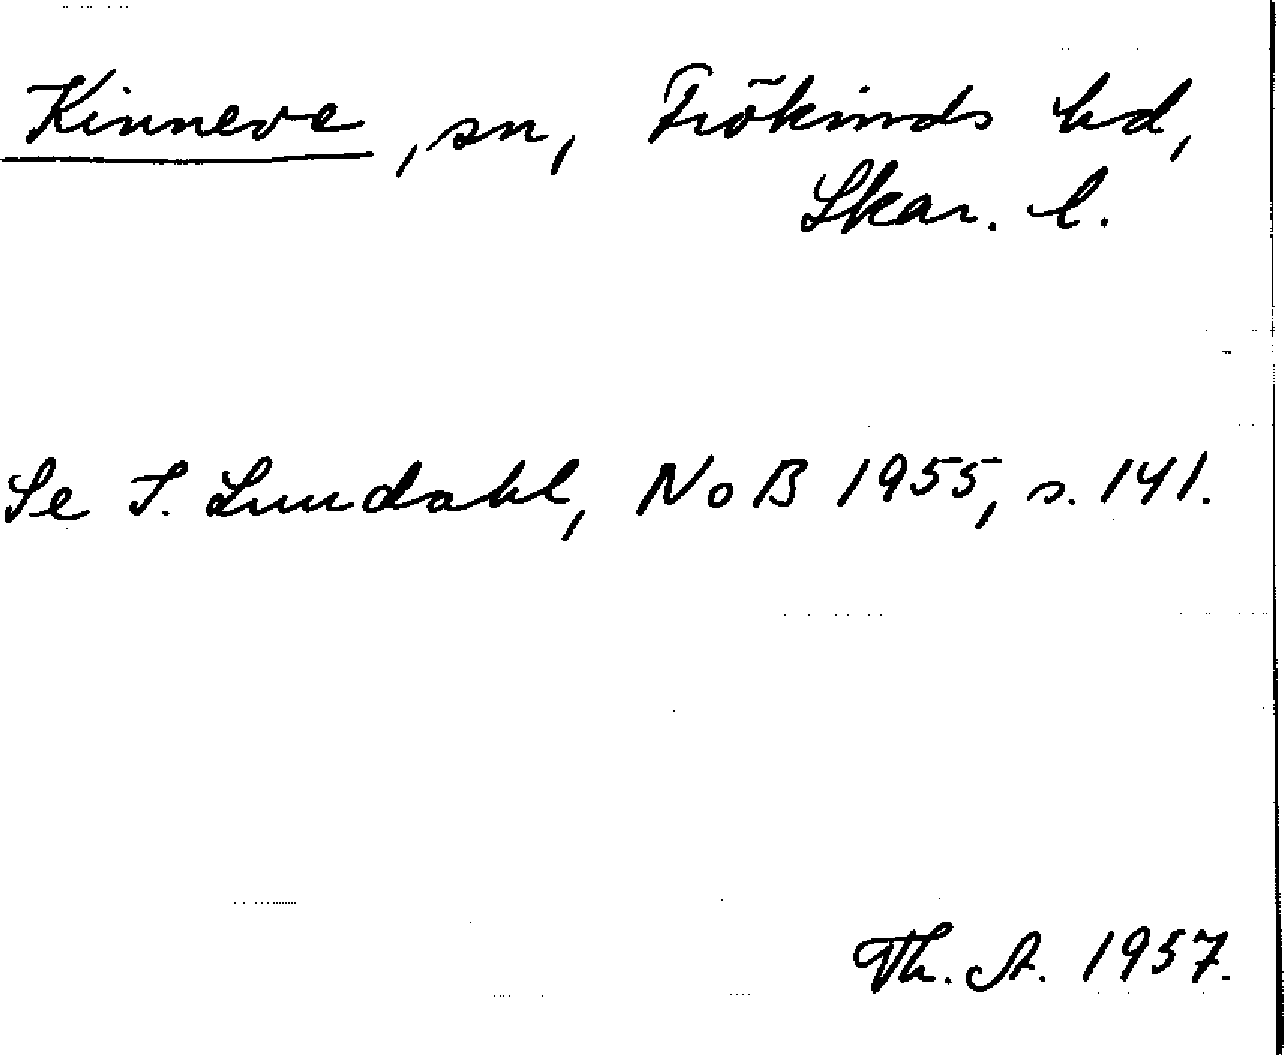 Kinneve, sn, Frökinds hd,
Skar. l.
Se I. Lundahl, NoB 1955, s. 141.
Th. A. 1957.